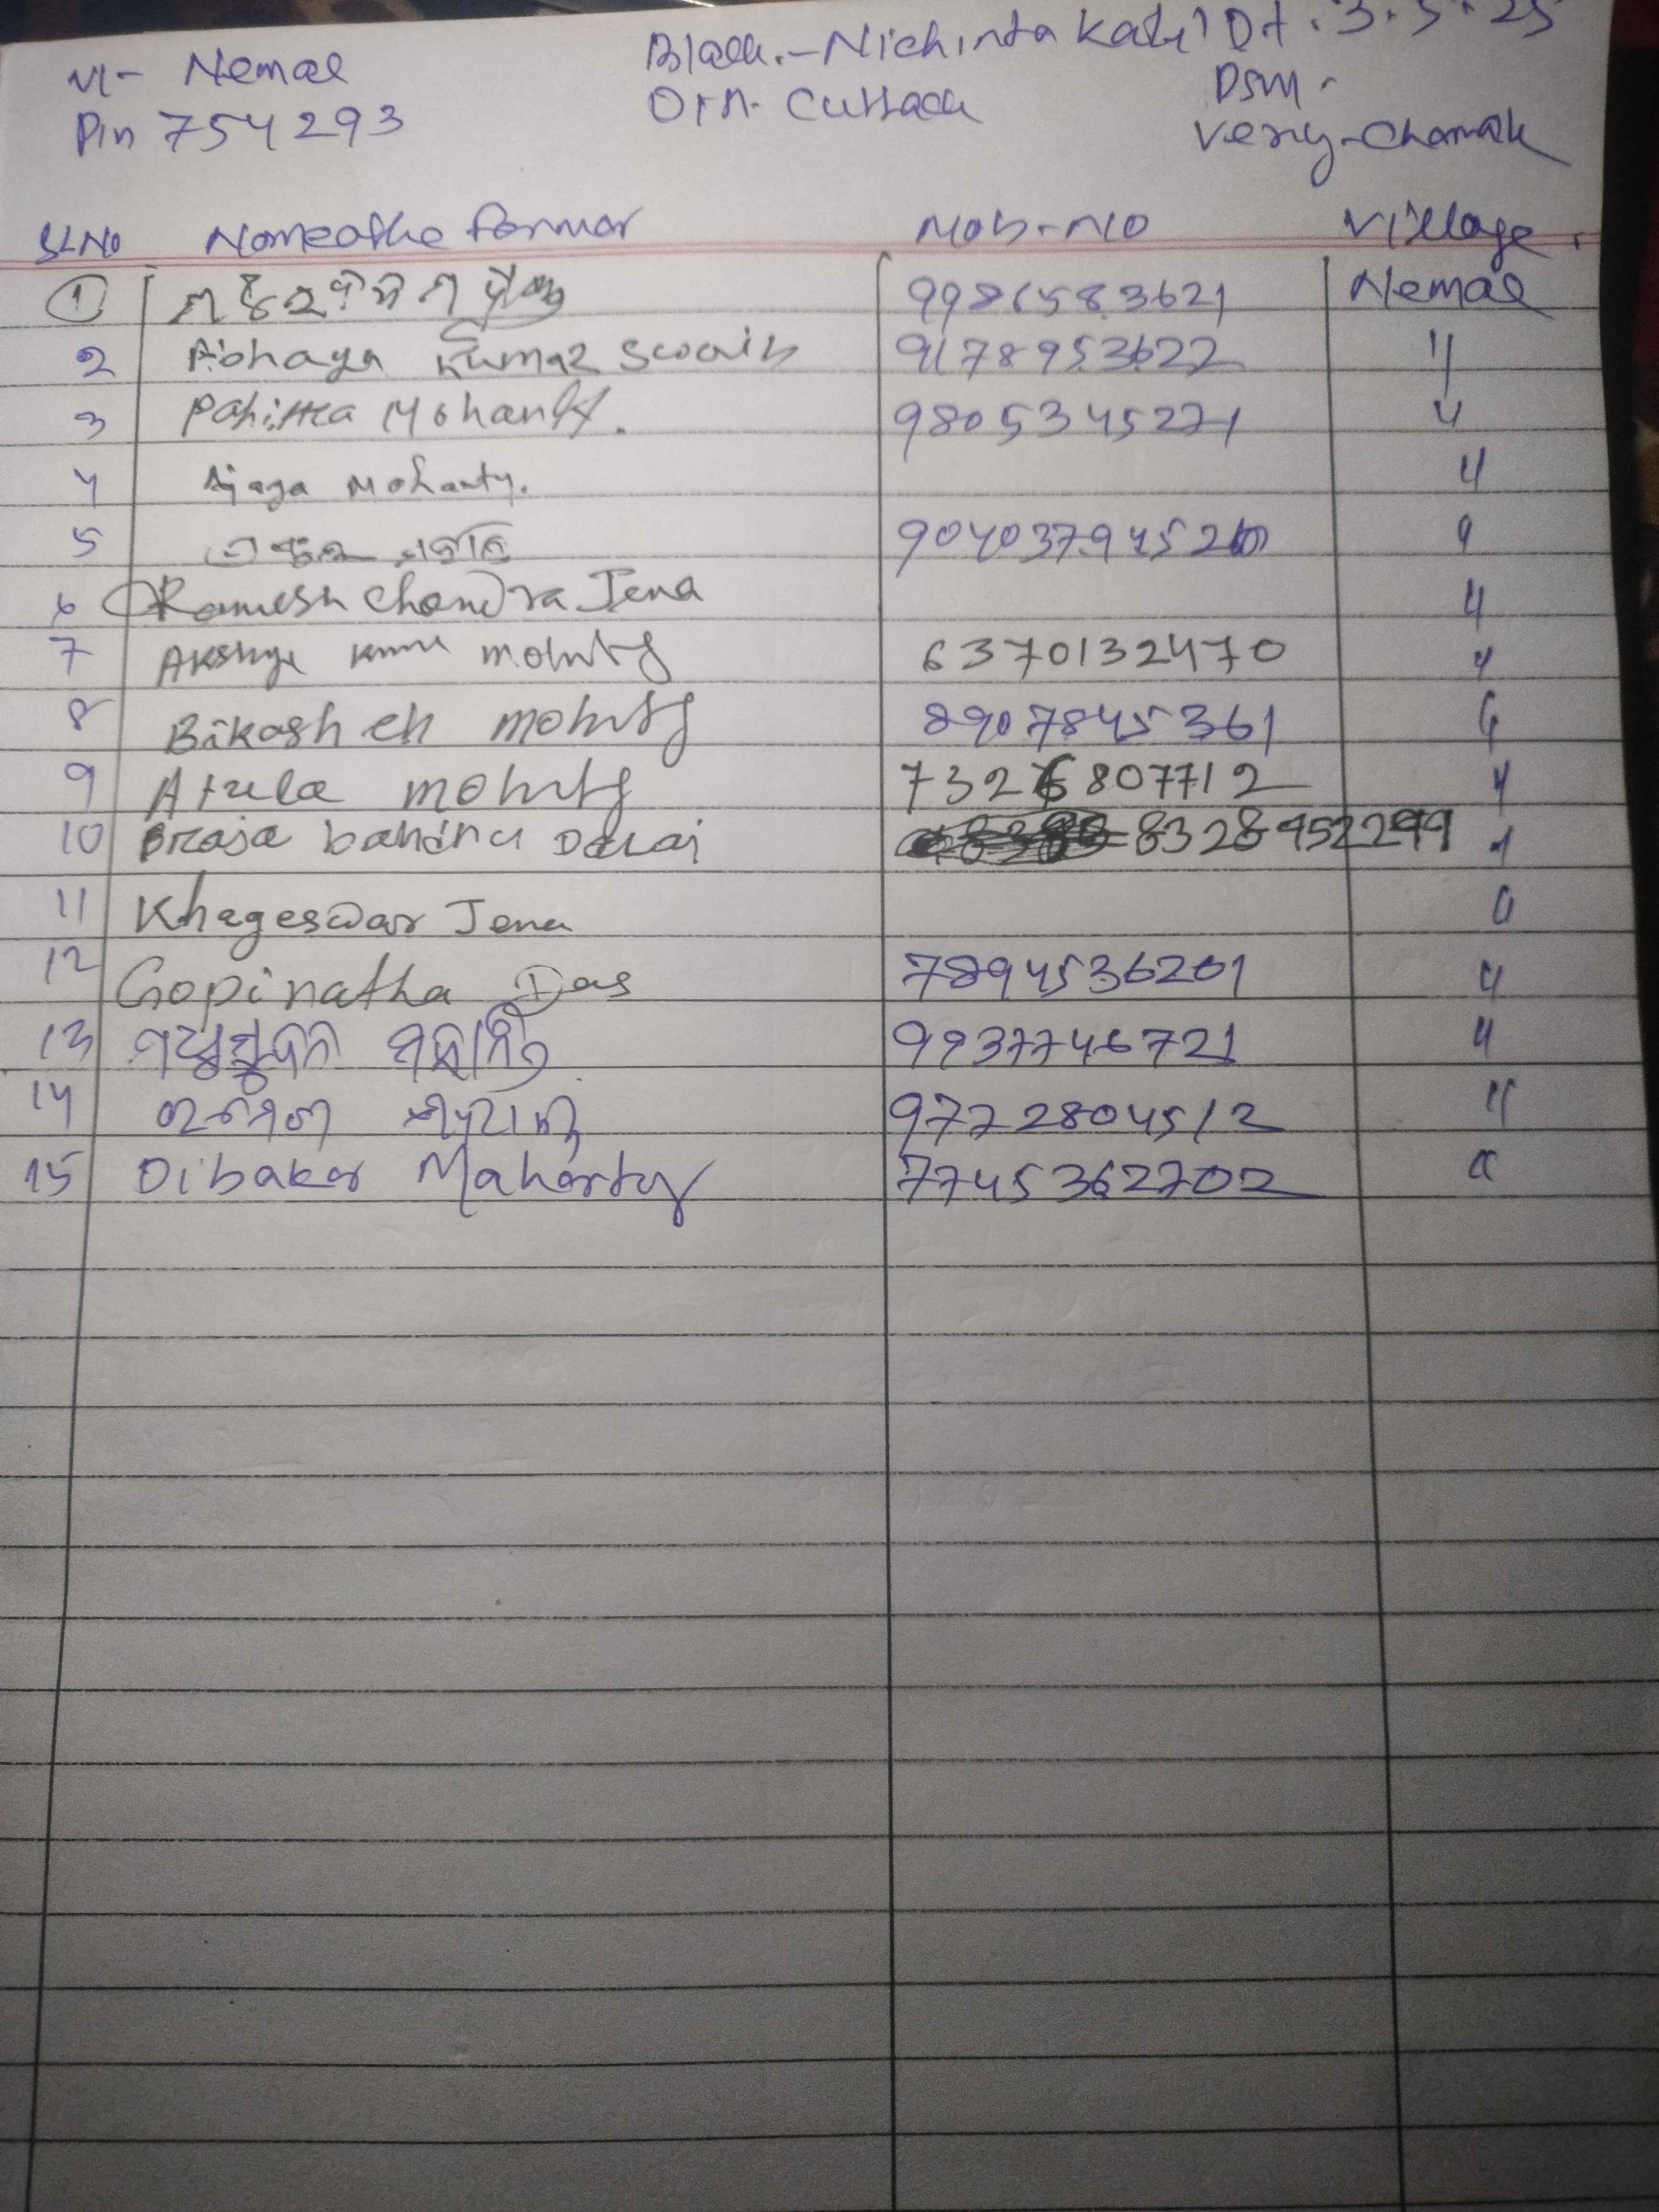 Vl- Nemal Block.-Nichinta Kaili Dt. 3.5.25
Pin 754293 Dist. Cuttack DSM.
Very-Chamak
SL NO Name of the farmar Mob-NO Village.
1 Nemal
2 Abhaya Kumar Swain 9178953622 "
3 Pabitra Mohanty. 9805345271 "
4 Ajaya Mohanty. "
5 "
6 Ramesh Chandra Jena "
7 Akshya kumr mohnty 6370132470 "
8 Bikash ch mohnty 8907845361 "
9 Atula mohnty 7326807712 "
10 Braja bandhu Dalai 8328952299 "
11 Khageswar Jena "
12 Gopinatha Das 7894536201 "
13 ମଧୁସୁଦନ ମହାନ୍ତି 9937746721 "
14 9772804512 "
15 Dibakar Mahanty 7745362702 "